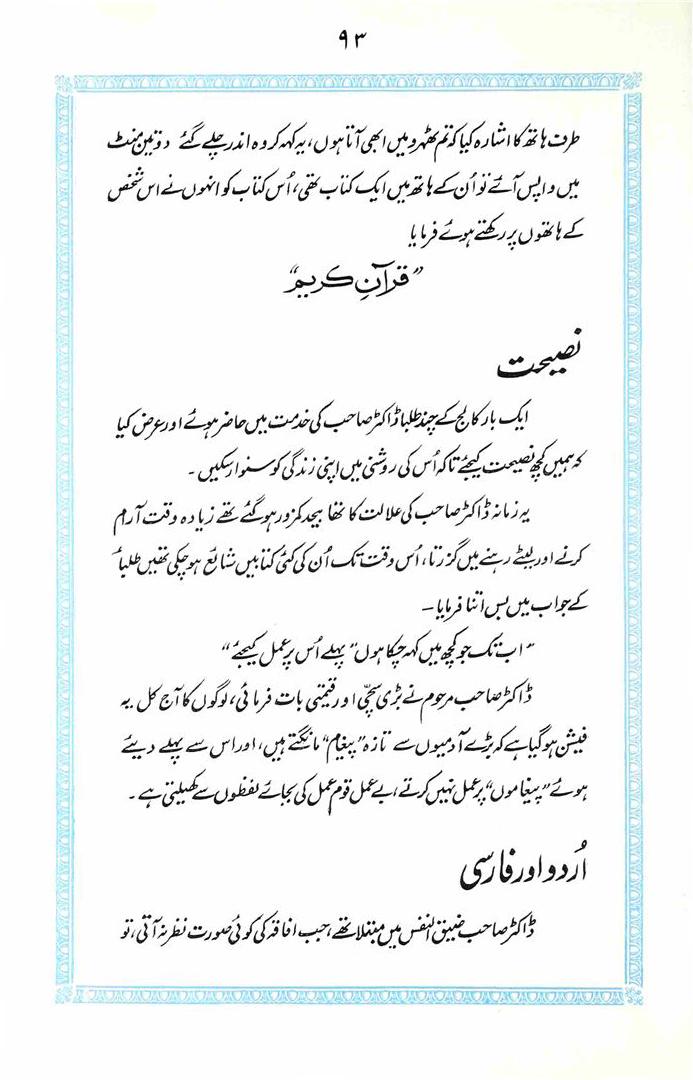 ۹۳
طرف ہاتھ کا اشارہ کیا کہ تم ٹھہرو میں ابھی آتا ہوں، یہ کہہ کر وہ اندر چلے گئے دو تین منٹ
میں واپس آئے تو اُن کے ہاتھ میں ایک کتاب تھی، اُس کتاب کو انہوں نے اس شخص
کے ہاتھوں پر رکھتے ہوئے فرمایا
”قرآنِ کریم“
نصیحت
ایک بار کالج کے چند طلبا ڈاکٹر صاحب کی خدمت میں حاضر ہوئے اور عرض کیا
کہ ہمیں کچھ نصیحت کیجئے تاکہ اُس کی روشنی میں اپنی زندگی کو سنوار سکیں ۔
یہ زمانہ ڈاکٹر صاحب کی علالت کا تھا بیحد کمزور ہو گئے تھے زیادہ وقت آرام
کرنے اور لیٹے رہنے میں گزرتا، اُس وقت تک اُن کی کئی کتابیں شایع ہو چکی تھیں طلباء
کے جواب میں بس اتنا فرمایا ۔
”اب تک جو کچھ میں کہہ چکا ہوں“ پہلے اُس پر عمل کیجئے“
ڈاکٹر صاحب مرحوم نے بڑی سچّی اور قیمتی بات فرمائی، لوگوں کا آج کل یہ
فیشن ہو گیا ہے کہ بڑے آدمیوں سے تازہ ”پیغام“ مانگتے ہیں، اور اس سے پہلے دیئے
ہوئے ”پیغاموں“ پر عمل نہیں کرتے، بے عمل قوم عمل کی بجائے لفظوں سے کھیلتی ہے ۔
اُردو اور فارسی
ڈاکٹر صاحب ضیق النفس میں مبتلا تھے، جب افاقہ کی کوئی صورت نظر نہ آتی، تو